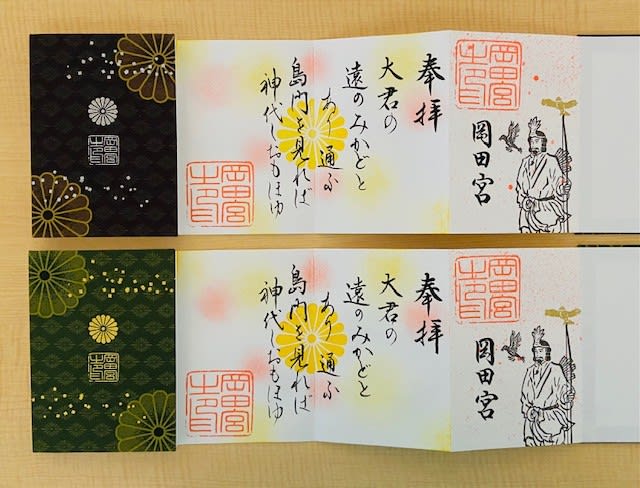 岡田宮
奉拝
大君の
遠のみかどと
あり通ふ
島門を見れば
神代しおもほゆ
岡田宮
奉拝
大君の
遠のみかどと
あり通ふ
島門を見れば
神代しおもほゆ